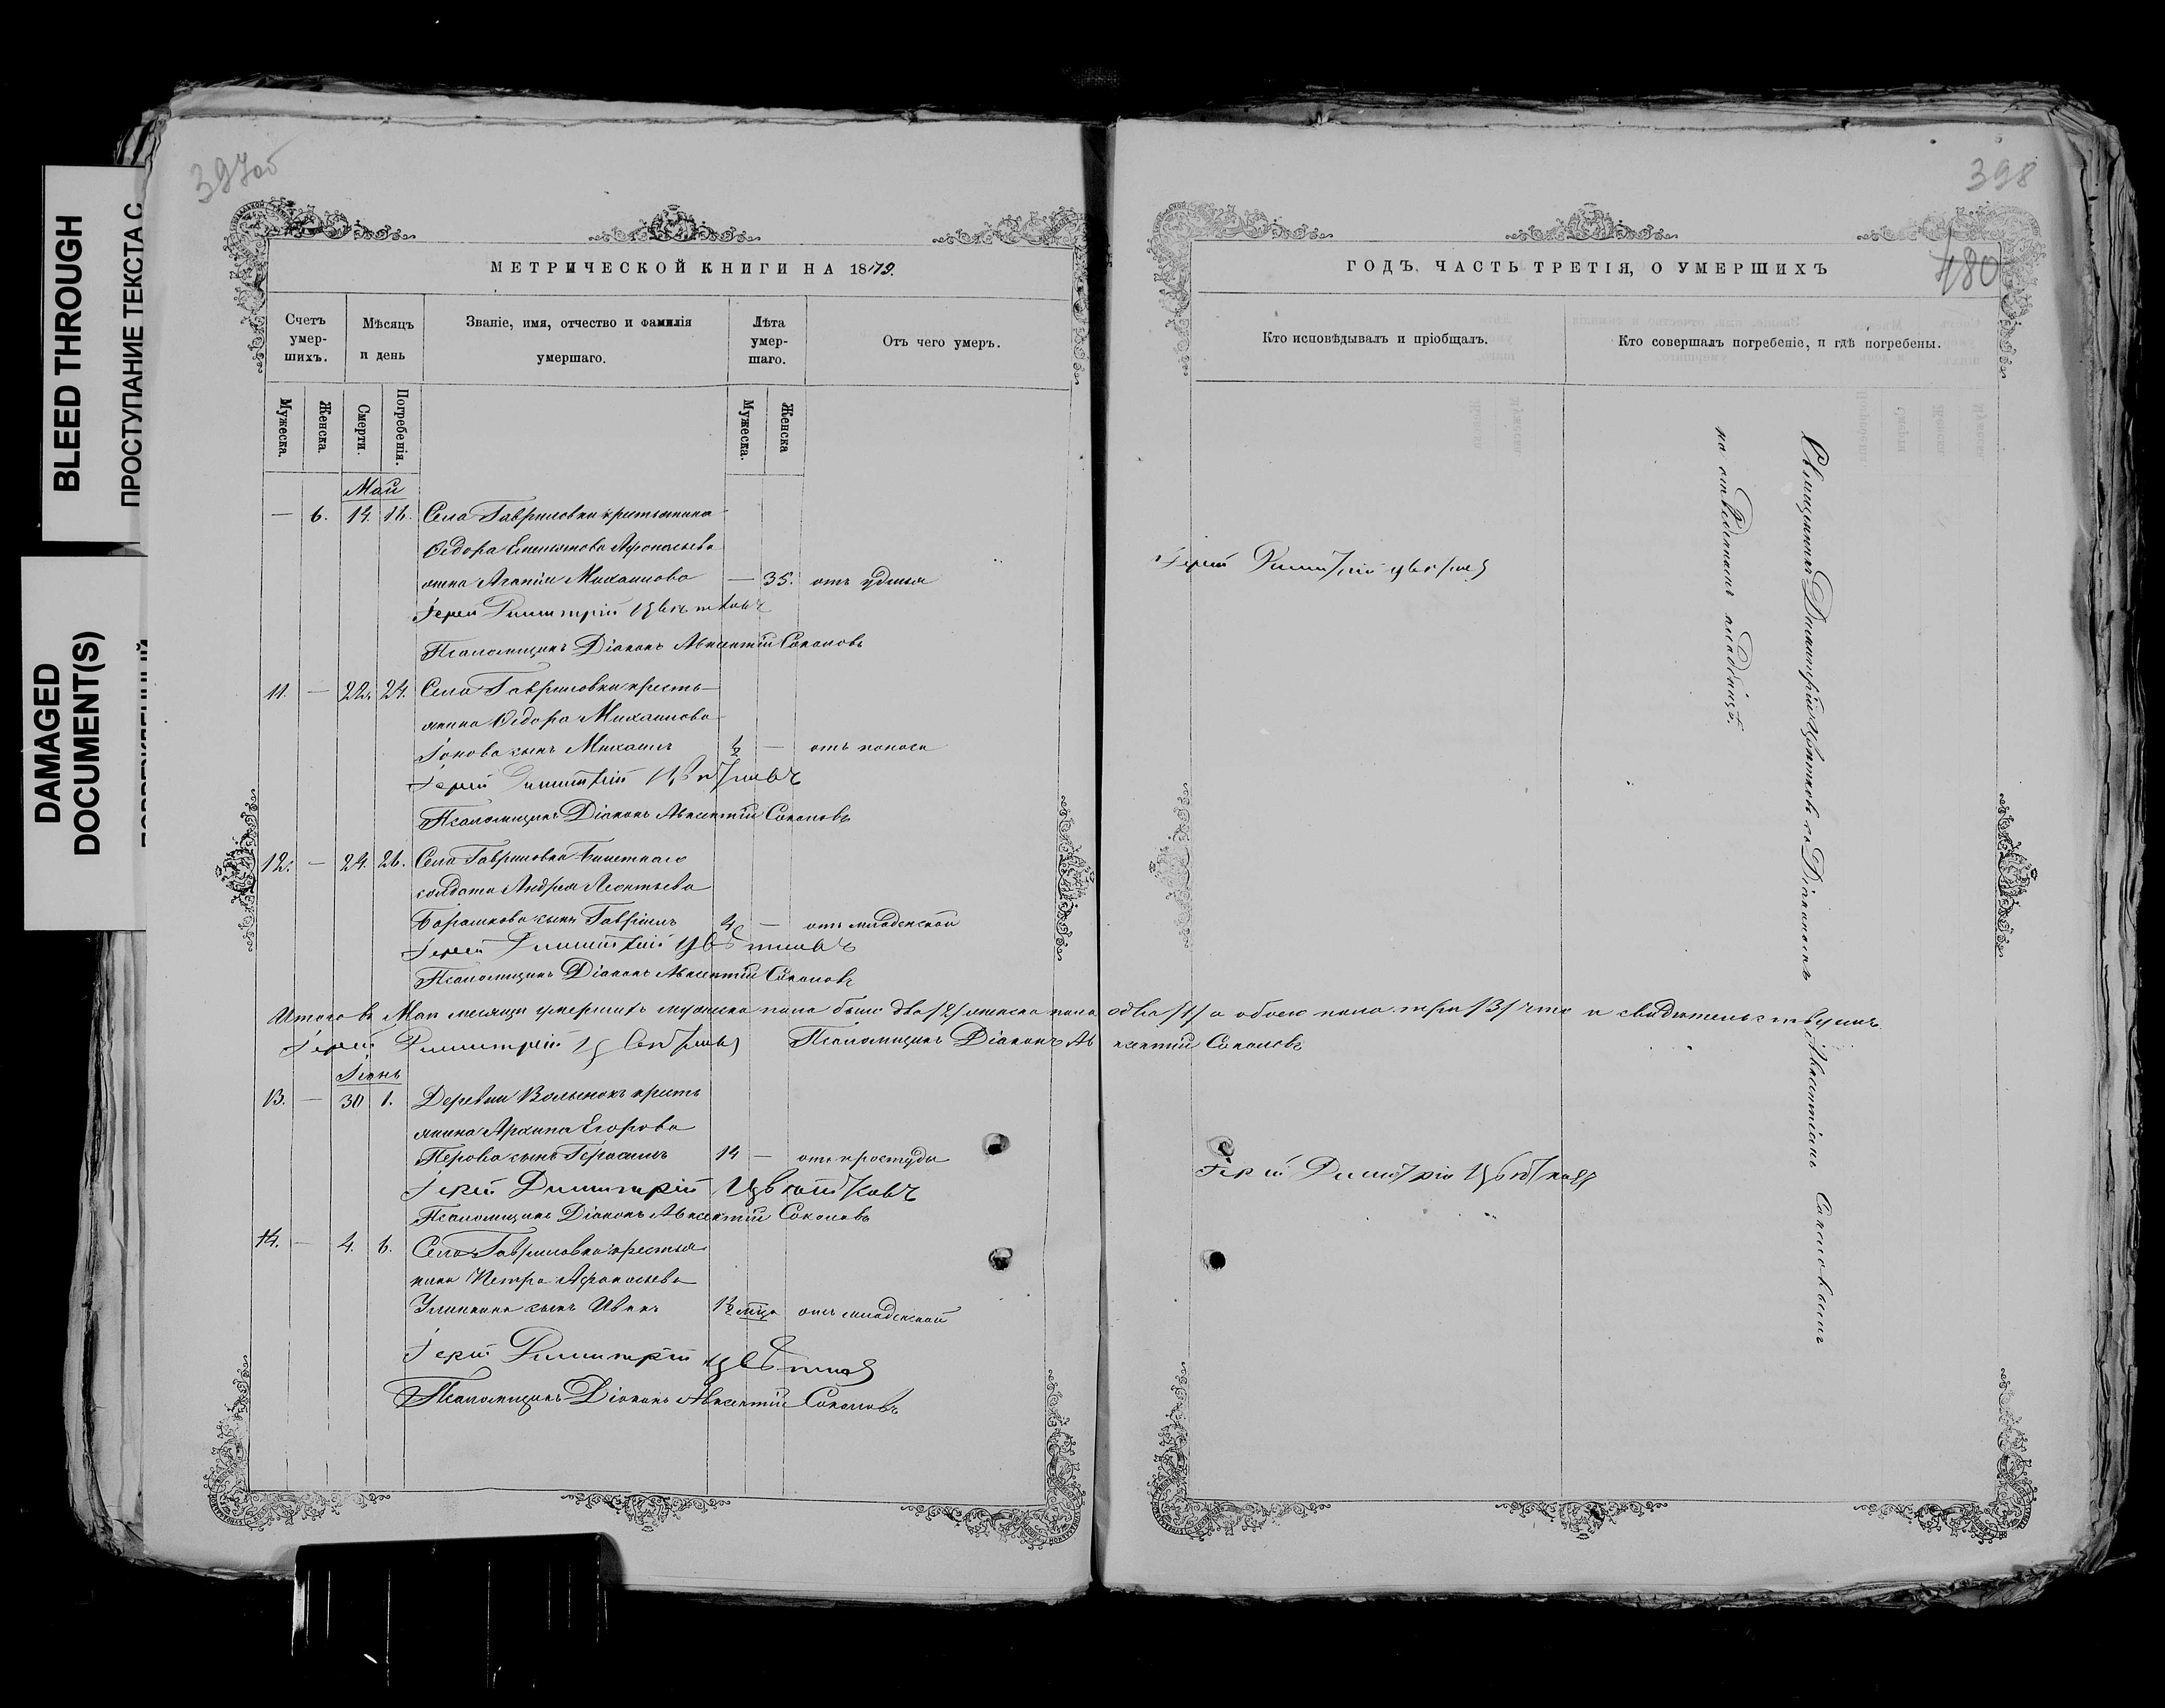 BLEED THROUGH
ПРОСТУПАНИЕ ТЕКСТА С
DAMAGED
DOCUMENT(S)
397об
МЕТРИЧЕСКОЙ КНИГИ НА 1879.
Счетъ умер-шихъ.
Мѣсяцъ и день
Званіе, имя, отчество и фамилія умершаго.
Лѣта умер-шаго.
Отъ чего умеръ.
Мужеска.
Женска.
Смерти.
Погребенія.
Мужеска.
Женска
Май
— 6. 14. 16. Села Гавриловки крестьянина
Ѳедора Емельянова Афонасьева
жена Агапія Михаилова — 35. отъ удушья
Іерей Димитрій Цвѣтковъ
Псаломщикъ Діаконъ Авксентій Соколовъ
11. — 22. 24. Села Гавриловки кресть-
янина Ѳедора Михаилова
Іонова сынъ Михаилъ ½ — отъ поноса
Іерей Димитрій Цвѣтковъ
Псаломщикъ Діаконъ Авксентій Соколовъ
12. — 24. 26. Села Гавриловки билетнаго
солдата Андрея Леонтьева
Барашкова сынъ Гавріилъ — отъ младенской
Іерей Димитрій Цвѣтковъ
Псаломщикъ Діаконъ Авксентій Соколовъ
Итого въ Маѣ месяцѣ умершихъ мужеска пола было два /2/ женска пола одна /1/ а обоего пола три /3/ что и свидетельствуемъ
Іерей Димитрій Цвѣтковъ Псаломщикъ Діаконъ Авксентій Соколовъ
Іюнь
13. — 30 1. Деревни Волынокъ кресть
янина Архипа Егорова
Перова сынъ Герасимъ 14 — отъ простуды
Іерей Димитрій Цвѣтковъ
Псаломщикъ Діаконъ Авксентій Соколовъ
14. — 4. 6. Села Гавриловки крестья
нина Петра Афонасьева
сынъ Иванъ 1½ мца отъ младенской
Іерей Димитрій Цвѣтковъ
Псаломщикъ Діаконъ Авксентій Соколовъ
398
480
ГОДЪ, ЧАСТЬ ТРЕТІЯ, О УМЕРШИХЪ
Кто исповѣдывалъ и пріобщалъ.
Кто совершалъ погребеніе, и гдѣ погребены.
Іерей Димитрій Цвѣтковъ
Іерей Димитрій Цвѣтковъ
Священникъ Димитрій Цвѣтковъ съ Діакономъ Авксентіемъ Соколовымъ
на отведенномъ кладбищѣ.